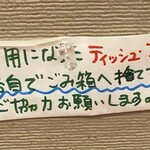 用になった ティッシュ
各自でごみ箱へ捨て
ご協力お願いします。